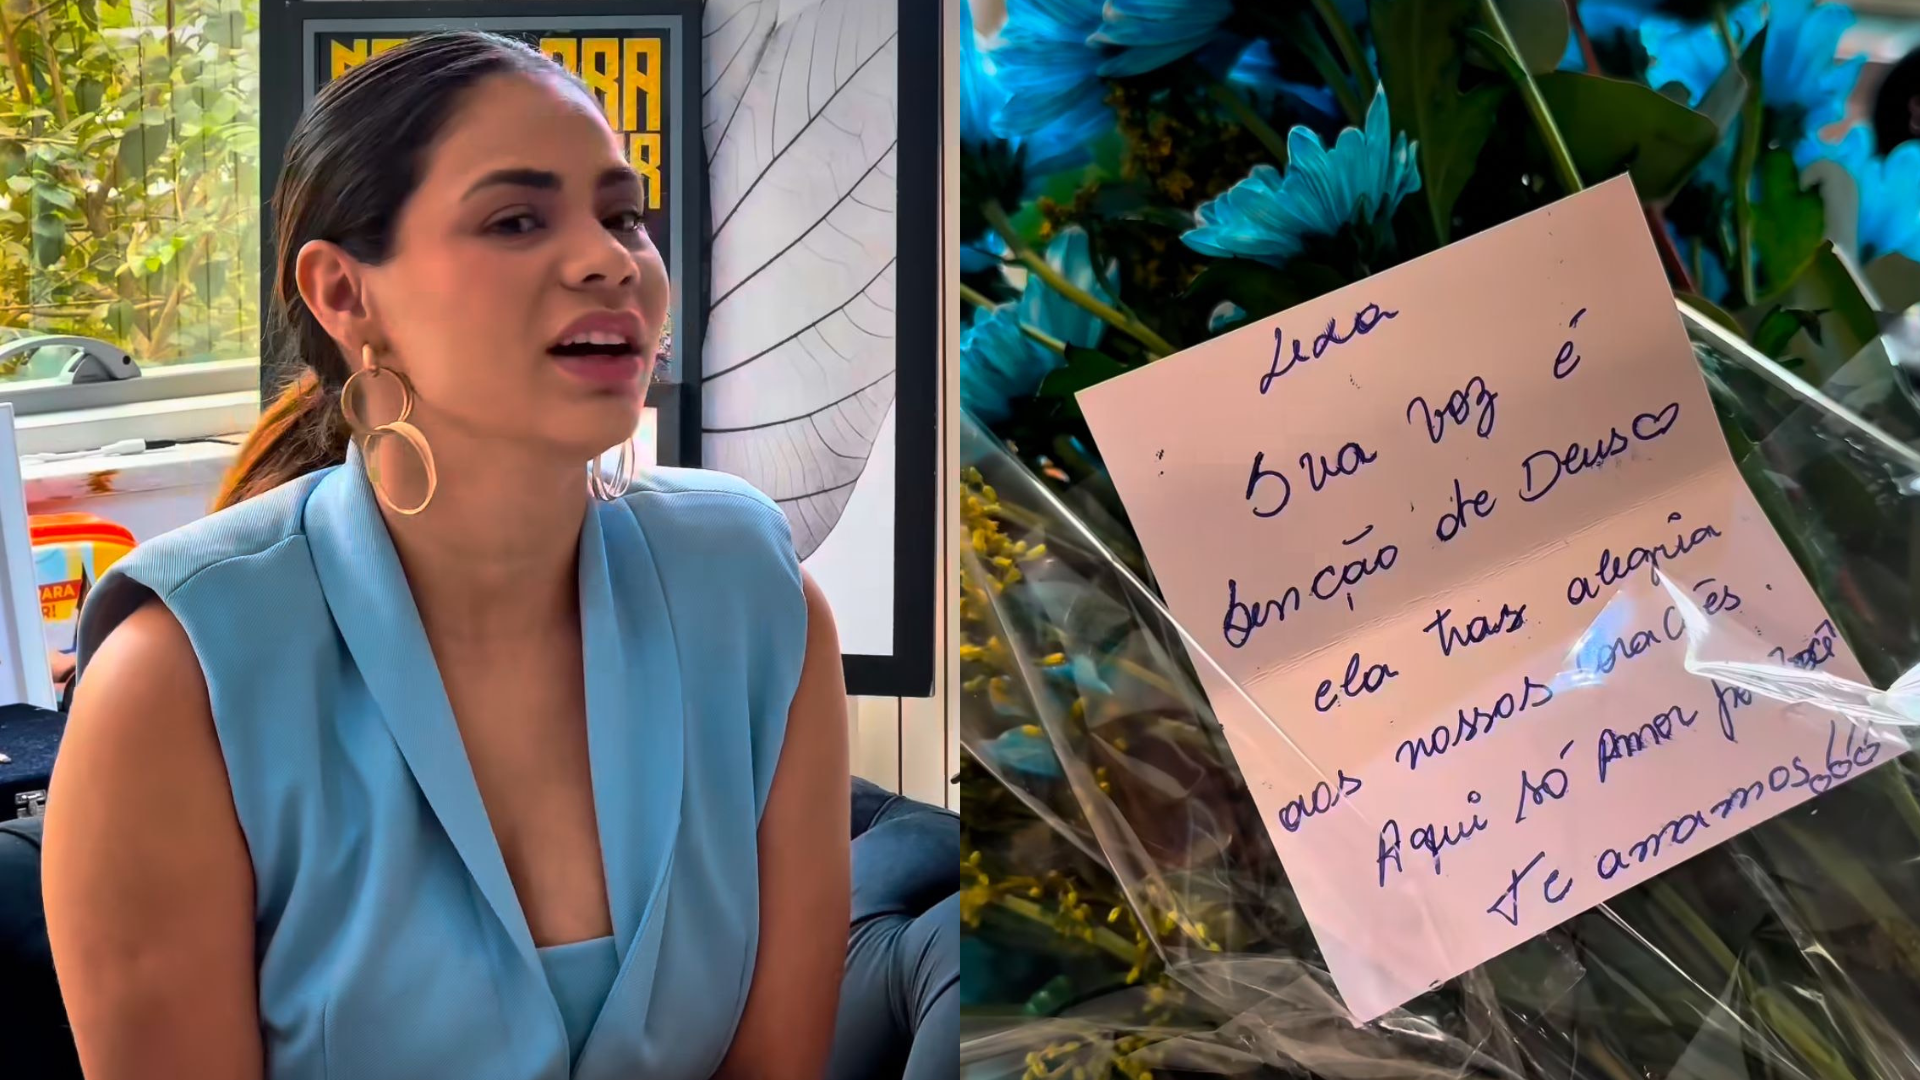 Lexa
Sua voz é
benção de Deus♡
ela tras alegria
aos nossos corações.
Aqui só Amor você
Te amamos!!!